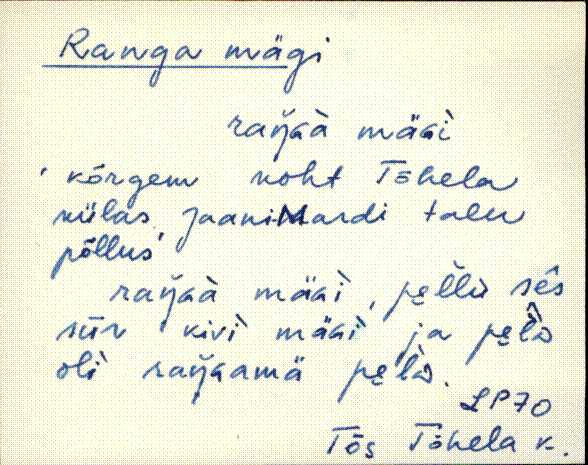 Ranga mägi
raŋGà mäGì
‘kõrgem koht Tõhela
külas Jaani-Mardi talu
põllus’
raŋGà mäGì, pe̮l̆lù sê̬s
sūr kivì mäGì ja
olì raŋGamä
LP70
Tõs Tõhela k.